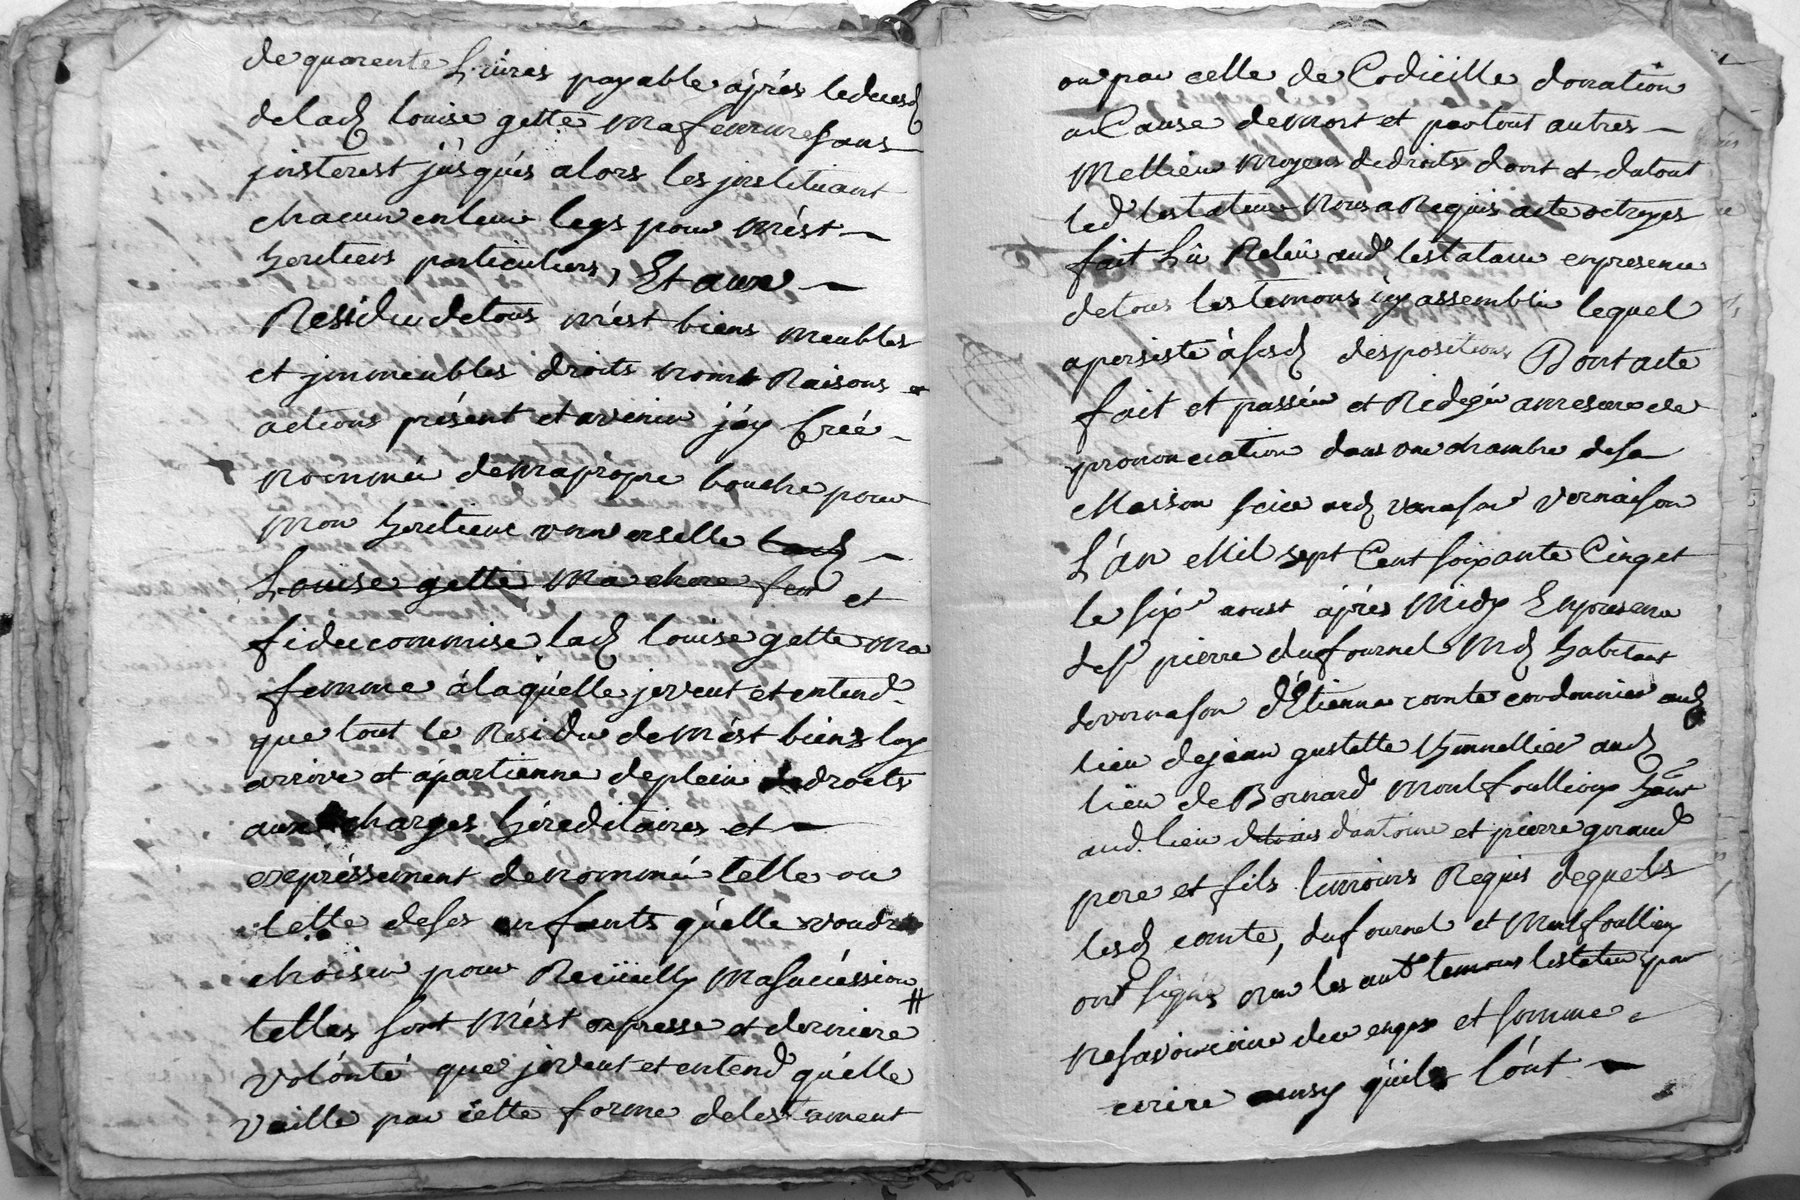 de quarente Livres payable áprés le deces
de lad louise gette ma femme sans
jnsterest júsqúés alors les jnstituant
chacun en leur legs pour mést
heritiers particuliers, Et aux
Residu de tous mést biens meubles
et jmmeubles droits noms Raisons et
actions présent et avenir j'áy Créé
nommée de ma própre bouche pour
mon heritiere universelle lad
Louise gette ma chere fem et
fideicommise lad louise gette ma
femme álaqúelle je veut et entend
que tout le Residu de mést biens luy
arrive et ápartienne de plein de droits
aux charges héréditaires et
expréssement de nommée telle ou
telle de ses enfants qúelle voudra
choisir pour Recüeilly ma suciéssion #
telles sont mést expresse et derniere
volónté que je veut et entend qúélle
vaille par cette forme de testament
ou par celle de Codicille donnation
a Cause de mort et par tout autres
Mellieur moyens de droits dont et du tout
led testateur nous a Requis acte octroyes
fait Lû Relûu aud testateur en presence
de tous les temons icy assemblée lequel
a persisté á sesd despositions Dont acte
fait et passée et Redigée a mesure de
prononciation dans une chambre de sa
Maison scice aud vernason vernaison
L'an Mil sept Cent soixante Cinq et
le six aoust áprés Midy En presence
de sr pierre dufournel Md habitant
de vernason d'Étienne comte cordonnier aud
lieu de jean gustette Tonnellier aud
lieu de Bernard montfoullioux habt
aud lieu d'antoine et pierre giraud
pere et fils temoins Requis dequels
lesd comte, dufournel et Monfoulliou
ont signés non les autre temons testateur par
ne savoir écrire de ce enquis et sommé
écrire ainsy qúils l'ónt